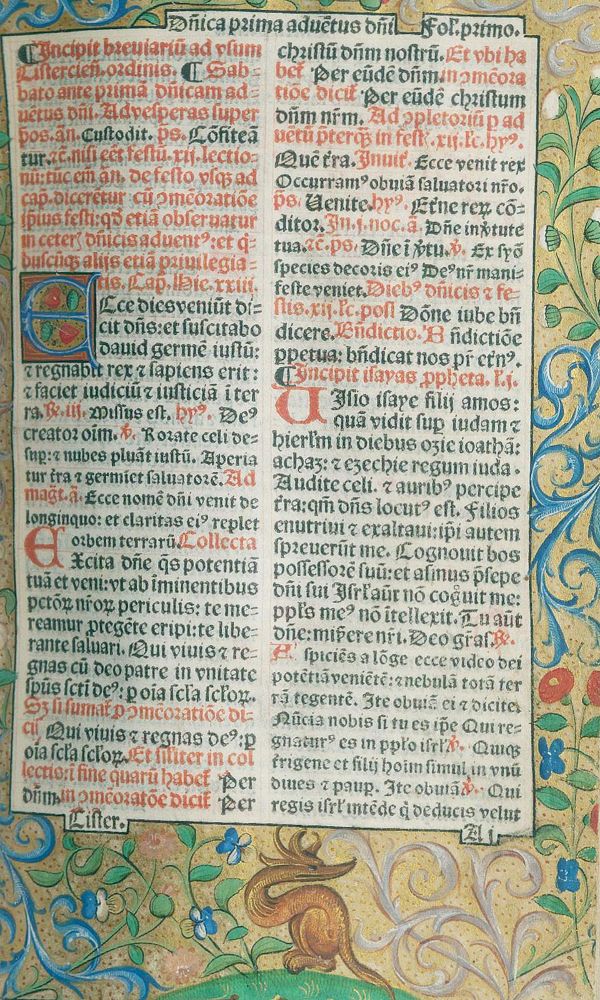 Dñica prima aduẽtus dñi
Fol. primo.
¶Incipit breuiariũ ad vsum
Cistercieñ. ordinis. ¶ Sab-
bato ante primã dñicam ad-
uẽtus dñi. Ad vesperas super
p̄os. añ. Custodit. p̄s. Cõfiteã
tur. ⁊c̃. nisi eẽt festũ. xij. lectio-
nũ: tuc em̃ añ. de festo vsq̨ ad
cap. diceretur cũ cõmẽoratiõe
ip̃ius festi: qđ etiã obseruatur
in ceteꝝ dñicis aduentꝰ: et q̃-
buscũq̨ alijs etiã priuilegia-
tis. Cap. Hie. xxiii.
ECce dies veniũt di-
cit dñs: et suscitabo
dauid germẽ iustũ:
⁊ regnabit rex ⁊ sapiens erit:
⁊ faciet iudiciũ ⁊ iusticiã ĩ ter
ra. ℟. iij. Missus est. hyꝰ. Deꝰ
creator oĩm. ℣. Rorate celi de-
sup: ⁊ nubes pluãt iustũ. Aperia
tur t̃ra ⁊ germĩet saluatorẽ. Ad
magt̃. ã. Ecce nomẽ dñi venit de
longinquo: et claritas eiꝰ replet
orbem terrarũ. Collecta
EXcita dñe q̃s potentiã
tuã et veni: vt ab ĩminentibus
pctõꝝ nr̃oꝝ periculis: te me-
reamur ꝓtegẽte eripi: te libe-
rante saluari. Qui viuis ⁊ re-
gnas cũ deo patre in vnitate
sp̃us sctĩ deꝰ: ꝑ oia scl̃a scl̃oꝝ.
Sꝫ si sumat̃ ꝓ cõmẽoratiõe di-
cit̃ Qui viuis ⁊ regnas deꝰ: ꝑ
oia scl̃a scl̃oꝝ. Et sil̃iter in col
lectio: ĩ fine quarũ habet̃ Per
dñm. in cõmẽoratõe dicit̃ Per
Cister.
christũ dñm nostrũ. Et vbi ha
bet̃ Per eũdẽ dñm. in cõmẽora
tiõe dicit̃ Per eũdẽ christum
dñm nr̃m. Ad cõpletoriũ ꝑ ad
uẽtũ p̃terq̃ȝ in fest̃. xij. l̃c. hyꝰ.
Quẽ t̃ra. Inuit̃. Ecce venit rex
Occurramꝰ obuiã saluatori nr̃o.
p̃s. Uenite. hyꝰ. Et̃ne reꝝ cõ-
ditor. In. j. noc. ã. Dñe in ṽtute
tua. ⁊c̃. p̃s. Dñe ĩ ṽtu. ℣. Ex syõ
species decoris eiꝰ Deꝰ nr̃ mani-
feste veniet. Diebꝰ dñicis ⁊ fe-
stis. xij. l̃c. posl Dõne iube bñ
dicere. Bñdictio. Bñdictiõe
ꝑpetua: bñdicat nos pr̃ et̃nꝰ.
¶Incipit isayas ꝓpheta. l̃. j.
UIsio isaye filij amos:
quã vidit sup iudam ⁊
hierl̃m in diebus ozie ioathã:
achaz: ⁊ ezechie regum iuda.
Audite celi. ⁊ auribꝰ percipe
t̃ra: qm̃ dñs locutꝰ est. Filios
enutriui ⁊ exaltaui: ip̃i autem
spreuerũt me. Cognouit bos
possessorẽ suũ: et asinus p̃sepe
dñi sui Isrl̃ aũt nõ cog̃uit me:
ppl̃s meꝰ nõ ĩtellexit. Tu aũt
dñe: mis̃erere nr̃i. Deo gr̃as. ℟.
Aspiciẽs a lõge ecce video dei
potẽtiã veniẽtẽ: ⁊ nebulã totã ter
rã tegentẽ. Ite obuiã ei ⁊ dicite.
Nũcia nobis si tu es ip̃e Qui re-
gnaturꝰ es in ppl̃o isrl̃. ℣. Quiq̨
t̃rigene et filij hoim̃ simul in vnũ
diues ⁊ paup. Ite obuiã. ℣. Qui
regis isrl̃ intẽde q̃ deducis velut
A i